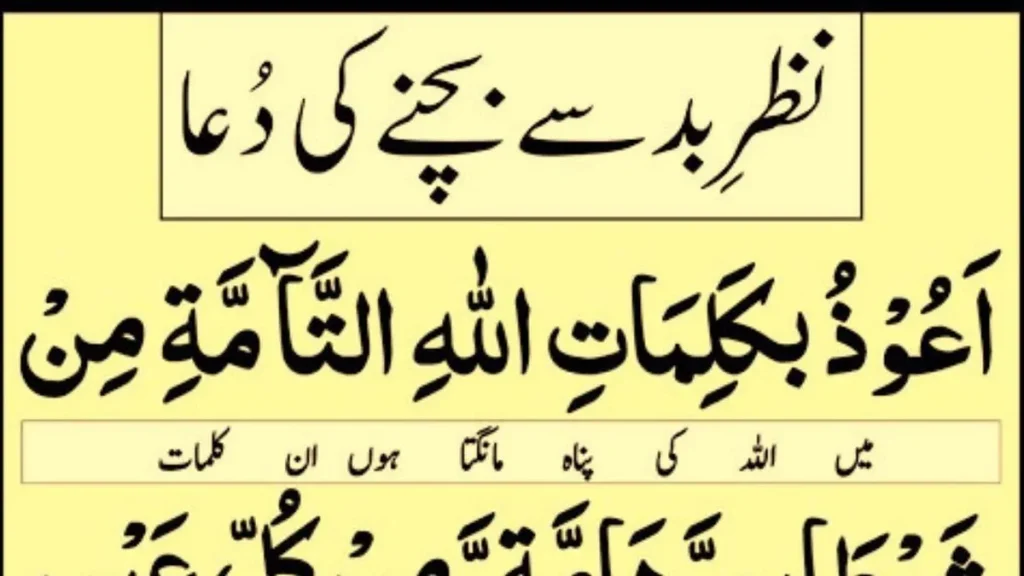 نظرِ بد سے بچنے کی دُعا
اَعُوْذُ بِكَلِمَاتِ اللّٰهِ التَّآمَّةِ مِنْ
میں اللہ کی پناہ مانگتا ہوں ان کلمات